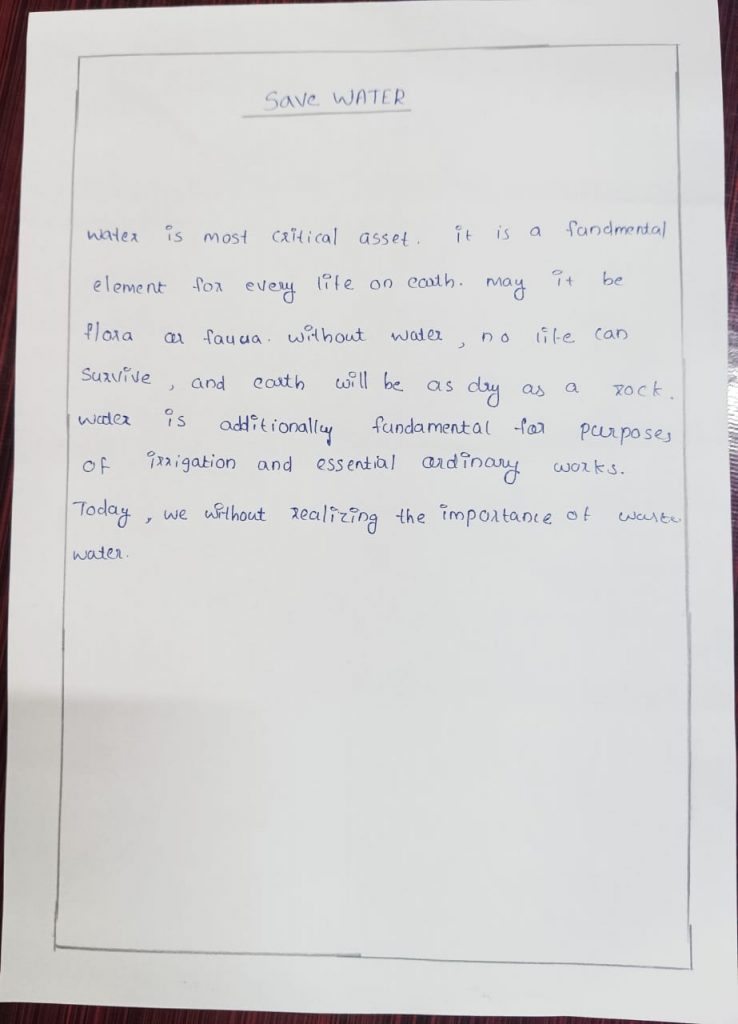 Save WATER
water is most critical asset. it is a fandmental
element for every life on earth. may it be
flora or fauua. without water, no life can
Survive, and earth will be as dry as a rock.
water is additionally fundamental for purposes
of irrigation and essential ordinary works.
Today, we without realizing the importance of waste
water.